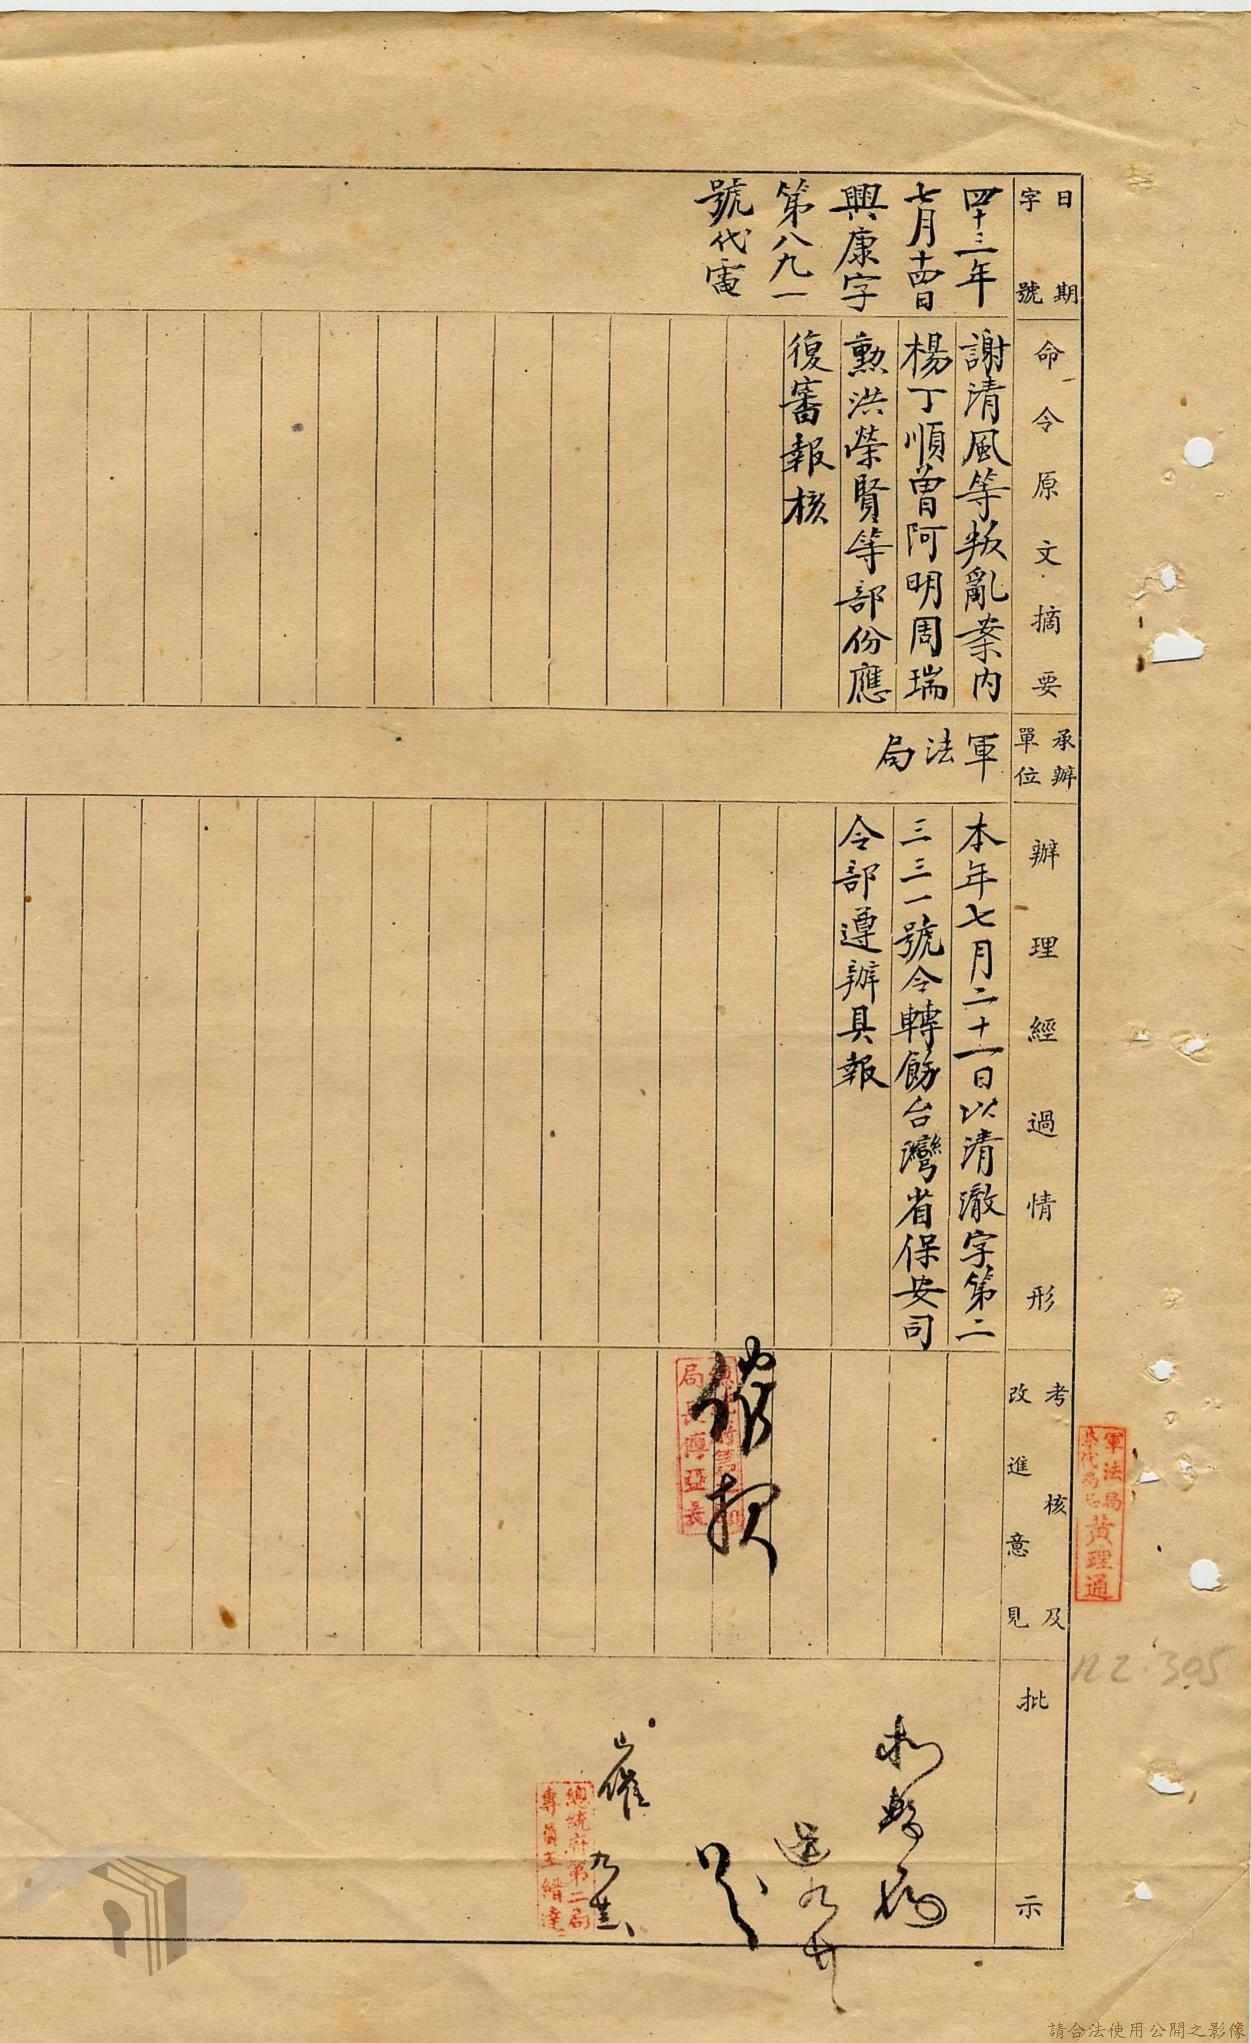 日期
字號
四十三年
七月十四日
興康字
第八九一
號代電
命令原文摘要
謝清風等叛亂案內
楊丁順曾阿明周瑞
勲洪榮賢等部份應
復審報核
承辦
單位
軍法局
辦理經過情形
本年七月二十一日以清澈字第二
三三一號令轉飭台灣省保安司
令部遵辦具報
考核及
改進意見
催報
局長傅亞夫
批示
催
總統府第二局
專員王縉達
軍法局
黃理通
112.305
請合法使用公開之影像